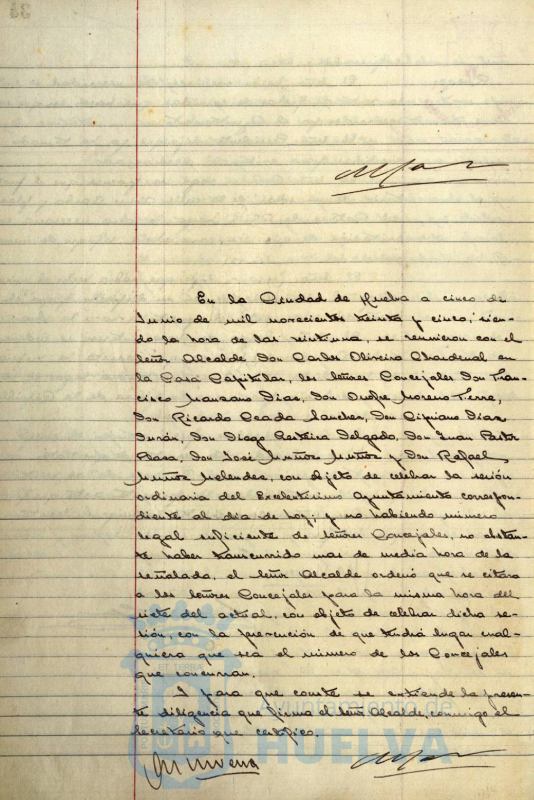 34
En la Ciudad de Huelva a cinco de
Junio de mil novecientos treinta y cinco, sien-
do la hora de las veintiuna, se reunieron con el
Señor Alcalde Don Carlos Oliveira Chardenal en
la Casa Capitular, los señores Concejales Don Fran-
cisco Manzano Dias, Don Onofre Moreno Terre,
Don Ricardo Ceada Sanchez, Don Cipriano Dias
Durán, Don Diego Delgado, Don Juan Pastor
Don José Muñoz Muñoz y Don Rafael
Muñoz Melendez, con objeto de celebrar la sesión
ordinaria del Excelentísimo Ayuntamiento correspon-
diente al día de hoy; y no habiendo número
legal suficiente de señores Concejales, no obstan-
te haber transcurrido mas de media hora de la
señalada, el Señor Alcalde ordenó que se citara
a los señores Concejales para la misma hora del
siete del actual, con objeto de celebrar dicha se-
sión, con la prevención de que tendrá lugar cual-
quiera que sea el número de los Concejales
que concurran.
I para que conste se extiende la presen-
te diligencia que firma el Señor Alcalde, conmigo el
Secretario que certifico.
Ayuntamiento de
HUELVA